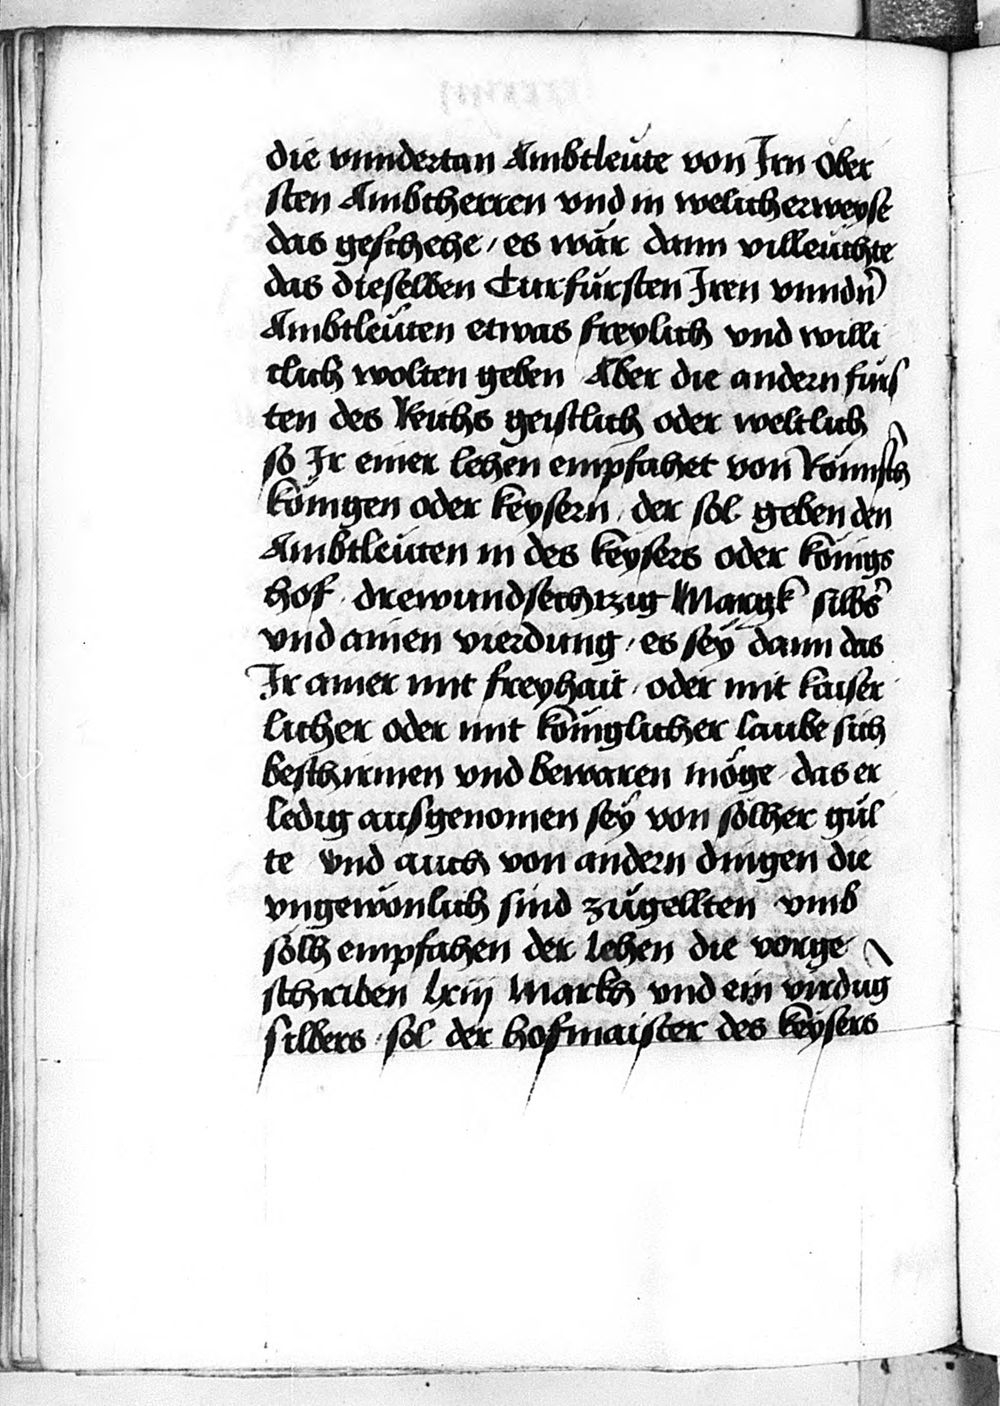 die vnndertan Ambtleute von Irn Ober
sten Ambtherren vnd in welicherweyse
das geschehe / es wär dann villeuchte
das dieselben Curfürsten Iren vnndn̄
Ambtleüten etwas freylich vnd willi
clich wolten geben Aber die andern fürs
ten des Reichs geistlich oder weltlich
so Ir einer lehen empfahet von Römisch
königen oder keysern / der sol geben den
Ambtleüten in des keysers oder königs
hof / drewundsechtzig Margk silbs̄
vnd ainen vierdung / es seÿ dann das
Ir ainer mit freyhait / oder mit kaiser
licher oder mit königlicher laube sich
beschirmen vnd bewaren möge / das er
ledig ausgenomen seÿ von sölher gül
te vnd auch von andern dingen die
vngewönlich sind zügellten vmb
sölh empfahen der lehen die vorge
schriben lxiij Marckh vnd ein virdūg
silbers / sol der hofmaister des keÿsers